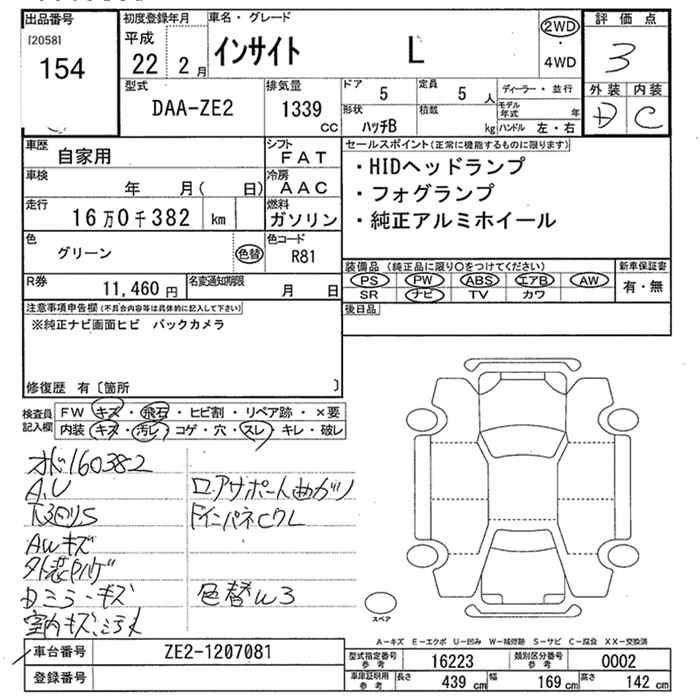 出品番号
[2058]
154
初度登録年月
平成
22 2 月
車名・グレード
インサイト L
2WD
・
4WD
評価点
3
外装 内装
D C
型式
DAA-ZE2
排気量
1339
cc
ドア 5
定員 5 人
ディーラー・並行
形状
ハッチB
積載
kg
モデル年式 年
ハンドル 左・右
車歴
自家用
シフト
FAT
車検
年 月( 日)
冷房
AAC
走行
16万0千382 km
燃料
ガソリン
色
グリーン
色替
色コード
R81
セールスポイント(正常に機能するものに限ります)
・HIDヘッドランプ
・フォグランプ
・純正アルミホイール
装備品(純正品に限り○をつけてください)
PS PW ABS エアB AW
SR ナビ TV カワ
新車保証書
有・無
後日品
R券
11,460 円
名変通知期限
月 日
注意事項申告欄(不具合内容等は具体的に記入して下さい)
※純正ナビ画面ヒビ バックカメラ
修復歴 有〔箇所 〕
検査員
記入欄
FW キズ・飛石・ヒビ割・リペア跡・×要
内装 キズ・汚レ・コゲ・穴・スレ・キレ・破レ
オド160382
A.U
下廻りS
AWキズ
Dミラーキズ
室内キズ.汚れ
ロアサポート曲がり
色替W3
スペア
A−キズ E−エクボ U−凹み W−補修跡 S−サビ C−腐食 XX−交換済
車台番号
ZE2-1207081
登録番号
型式指定番号
参考
16223
類別区分番号
参考
0002
車庫証明用
参考
長さ 439 cm
幅 169 cm
高さ 142 cm